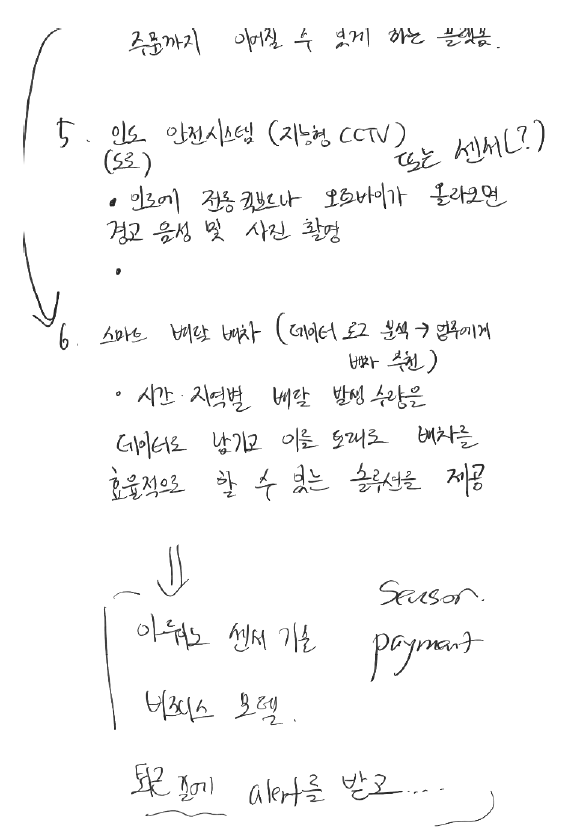 주문까지 이어질 수 있게 하는 플랫폼.
5. 인도 안전시스템 (지능형 CCTV)
또는 센서(?)
(도로)
• 인도에 전동킥보드나 오토바이가 올라오면
경고 음성 및 사진 촬영
•
6. 스마트 배달 배차 (데이터 로그 분석 → 업주에게
배차 추천)
• 시간·지역별 배달 발생 수량을
데이터로 남기고 이를 토대로 배차를
효율적으로 할 수 있는 솔루션을 제공
⇓
아두이노 센서 기술
sensor.
payment
비즈니스 모델.
퇴근 길에 alert를 받고....